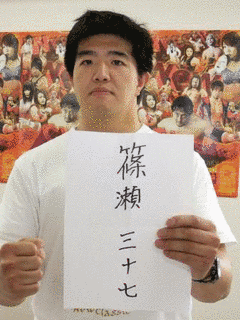 篠瀬 三十七